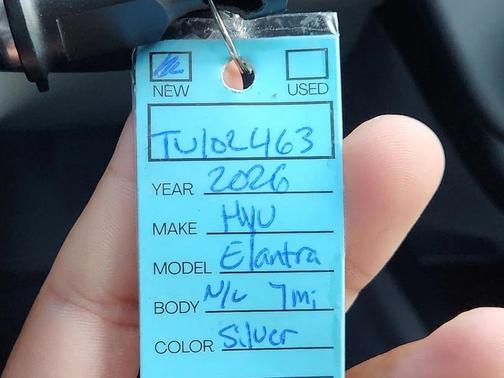 NEW USED
TU102463
YEAR 2026
MAKE HYU
MODEL Elantra
BODY N/L 7mi
COLOR Silver